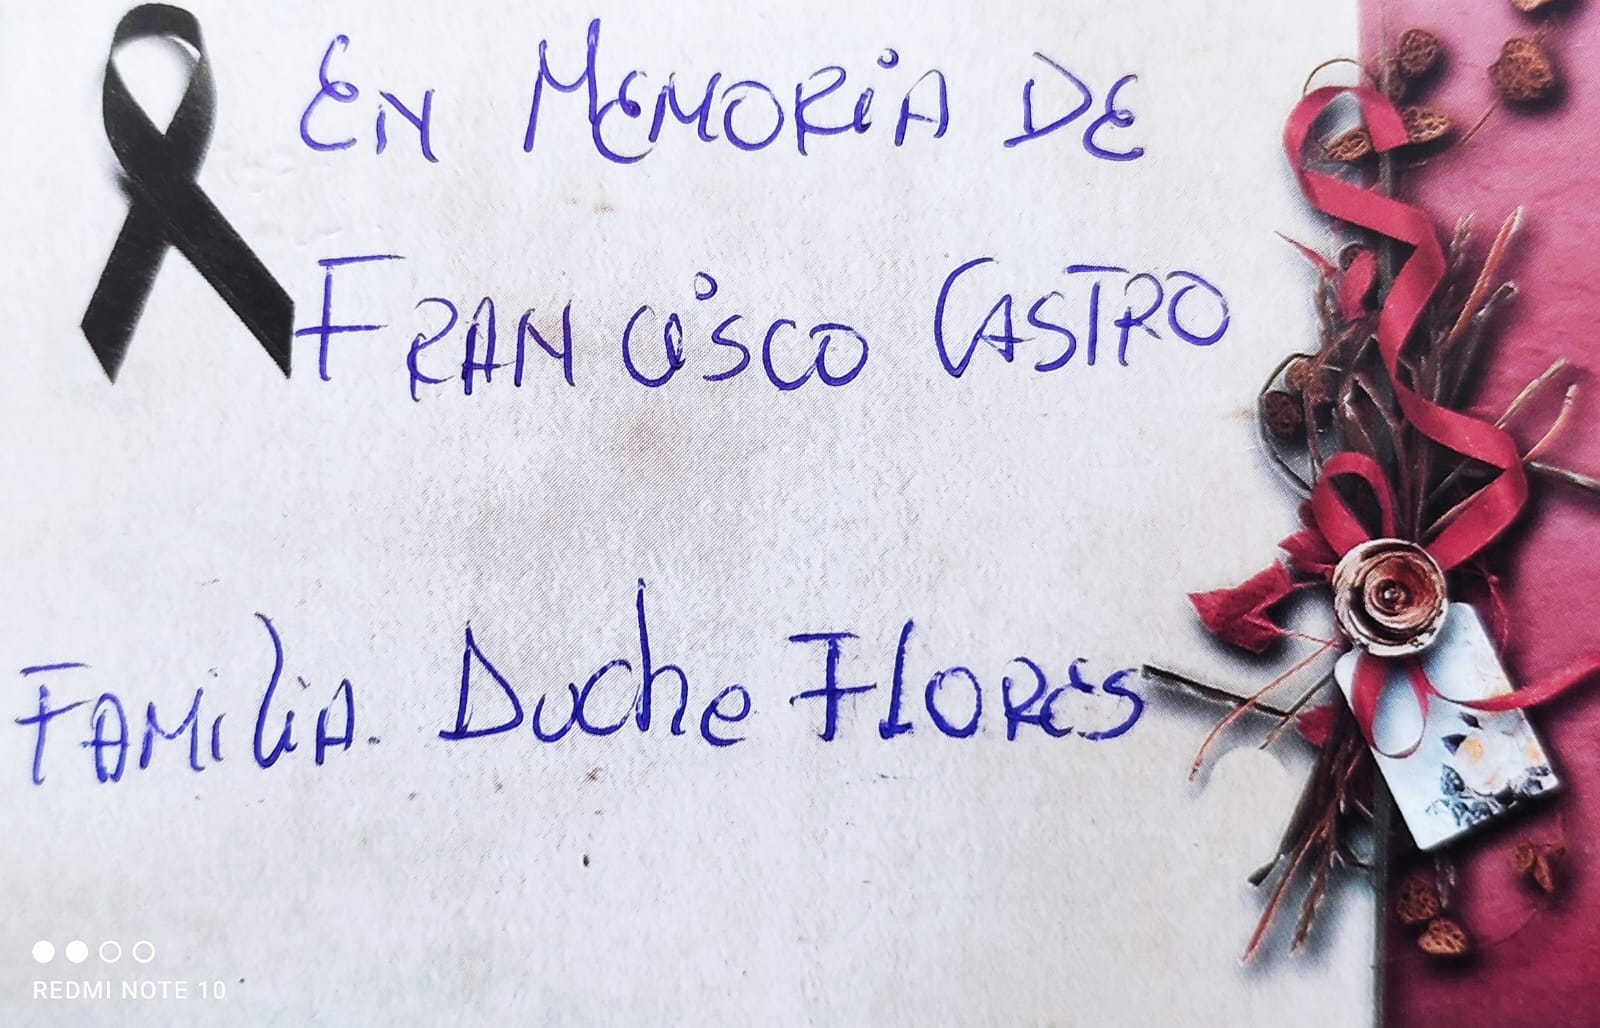 En MEMORiA DE
FRANCiSCO CASTRO
FAMiLiA. Duche FLORES
REDMI NOTE 10